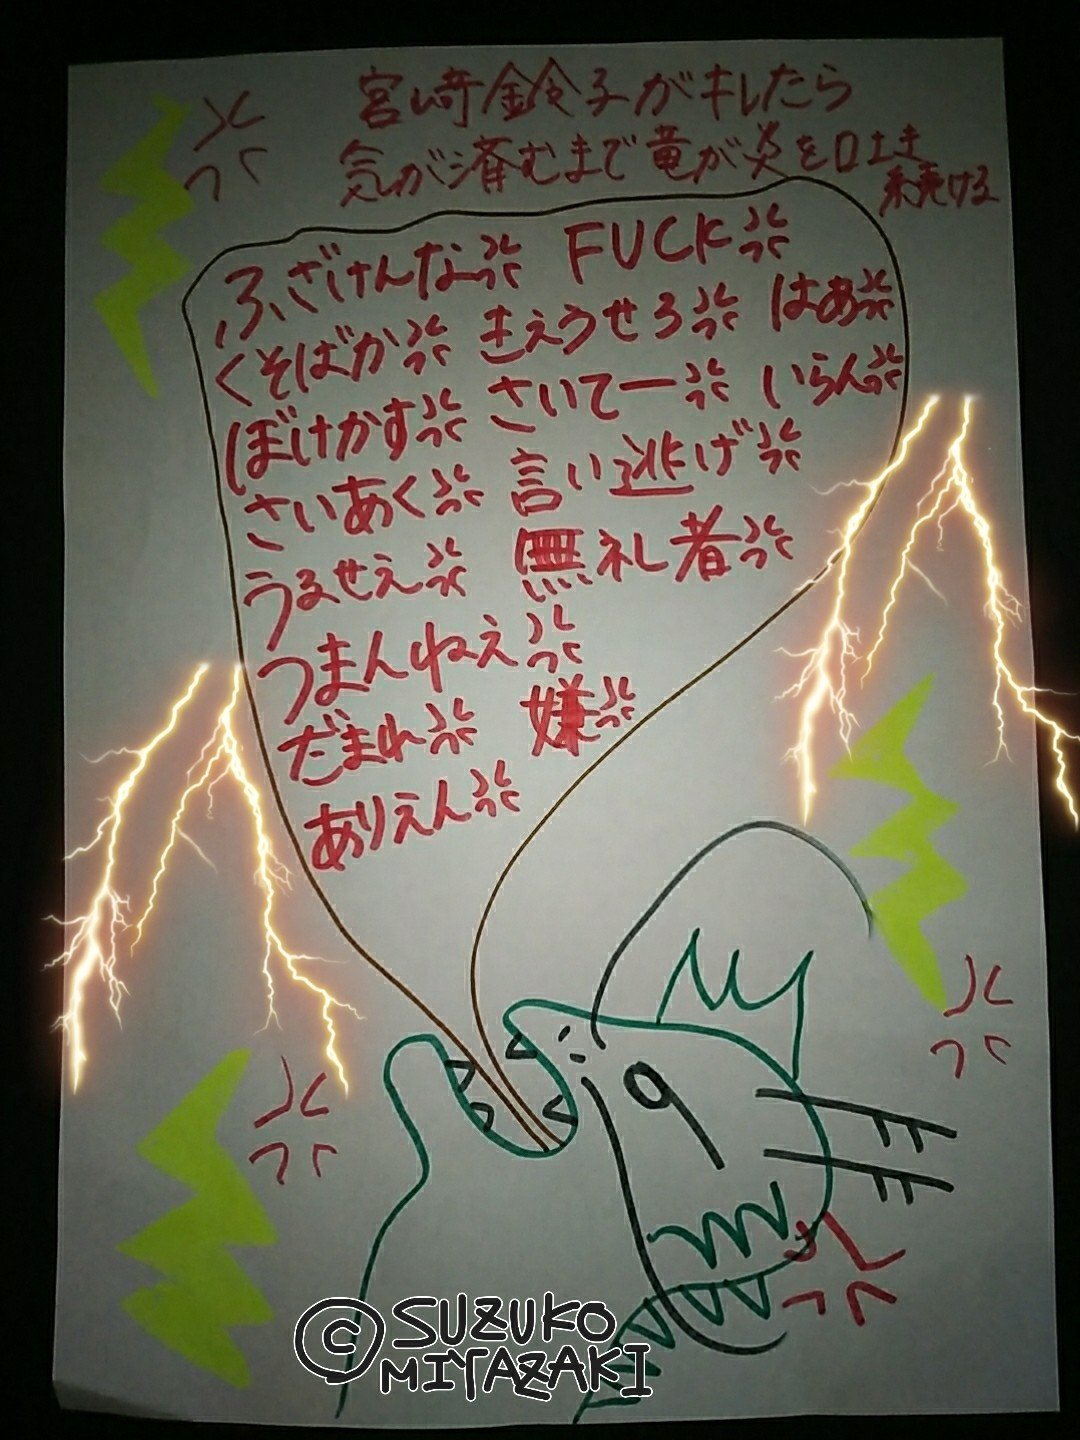 宮﨑鈴子がキレたら
気が済むまで竜が炎を吐き
続ける
ふざけんな💢 FUCK💢
くそばか💢 きえうせろ💢 はあ💢
ぼけかす💢 さいてー💢 いらん💢
さいあく💢 言い逃げ💢
うるせえ💢 無礼者💢
つまんねえ💢
だまれ💢 嫌💢
ありえん💢
© SUZUKO
MIYAZAKI